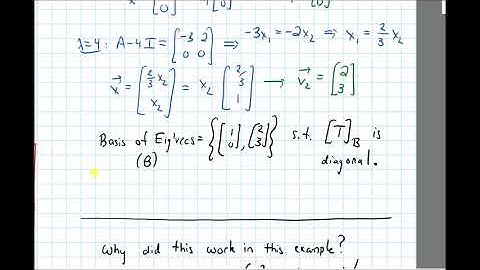 λ=4: A-4I = [-3 2; 0 0] ⇒ -3x₁ = -2x₂ ⇒ x₁ = 2/3 x₂
x⃗ = [2/3 x₂; x₂] = x₂ [2/3; 1] → v⃗₂ = [2; 3]
Basis of Eig'vecs = {[1; 0], [2; 3]} s.t. [T]_B is
(B) diagonal.
Why did this work in this example?